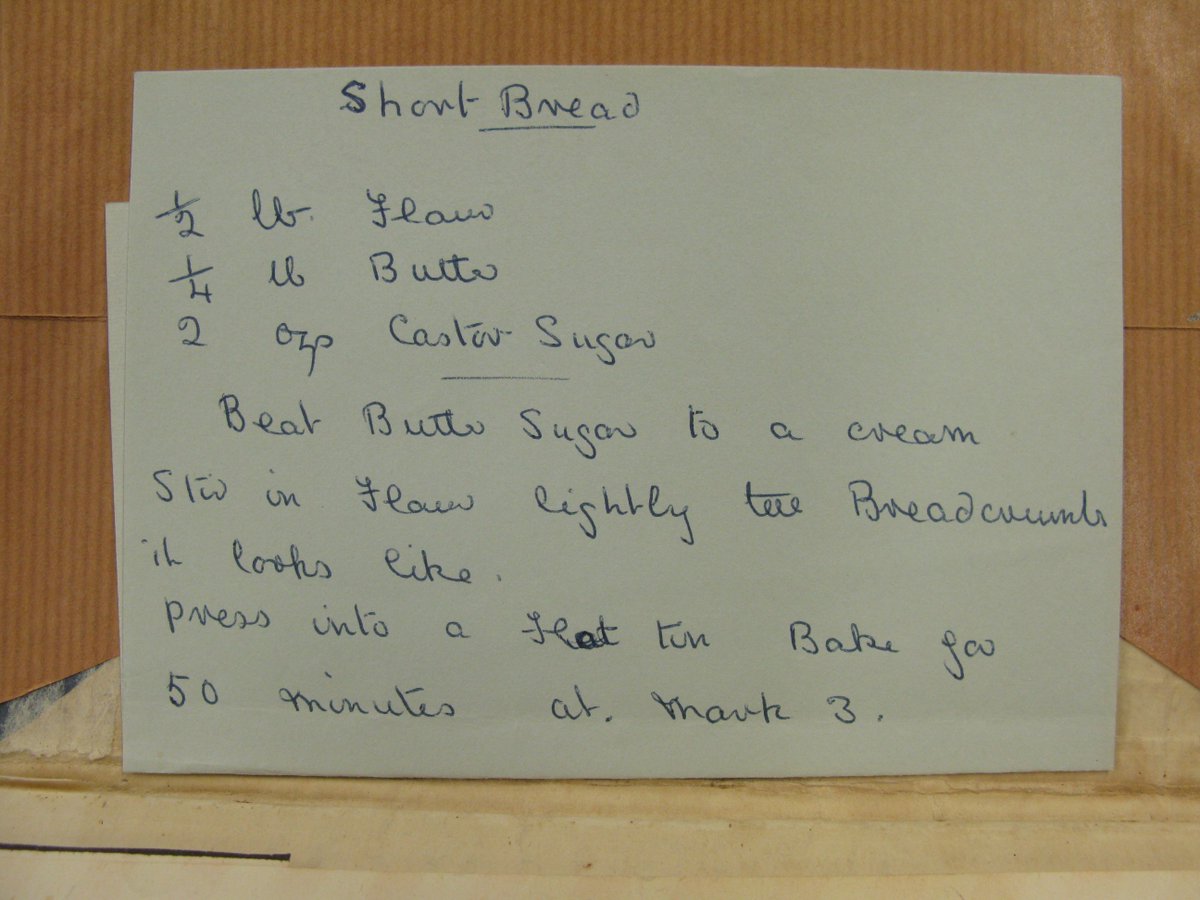 Short Bread
1/2 lb. Flour
1/4 lb Butter
2 ozs Castor Sugar
Beat Butter Sugar to a cream
Stir in Flour lightly till Breadcrumbs
it looks like.
press into a Flat tin Bake for
50 minutes at. Mark 3.